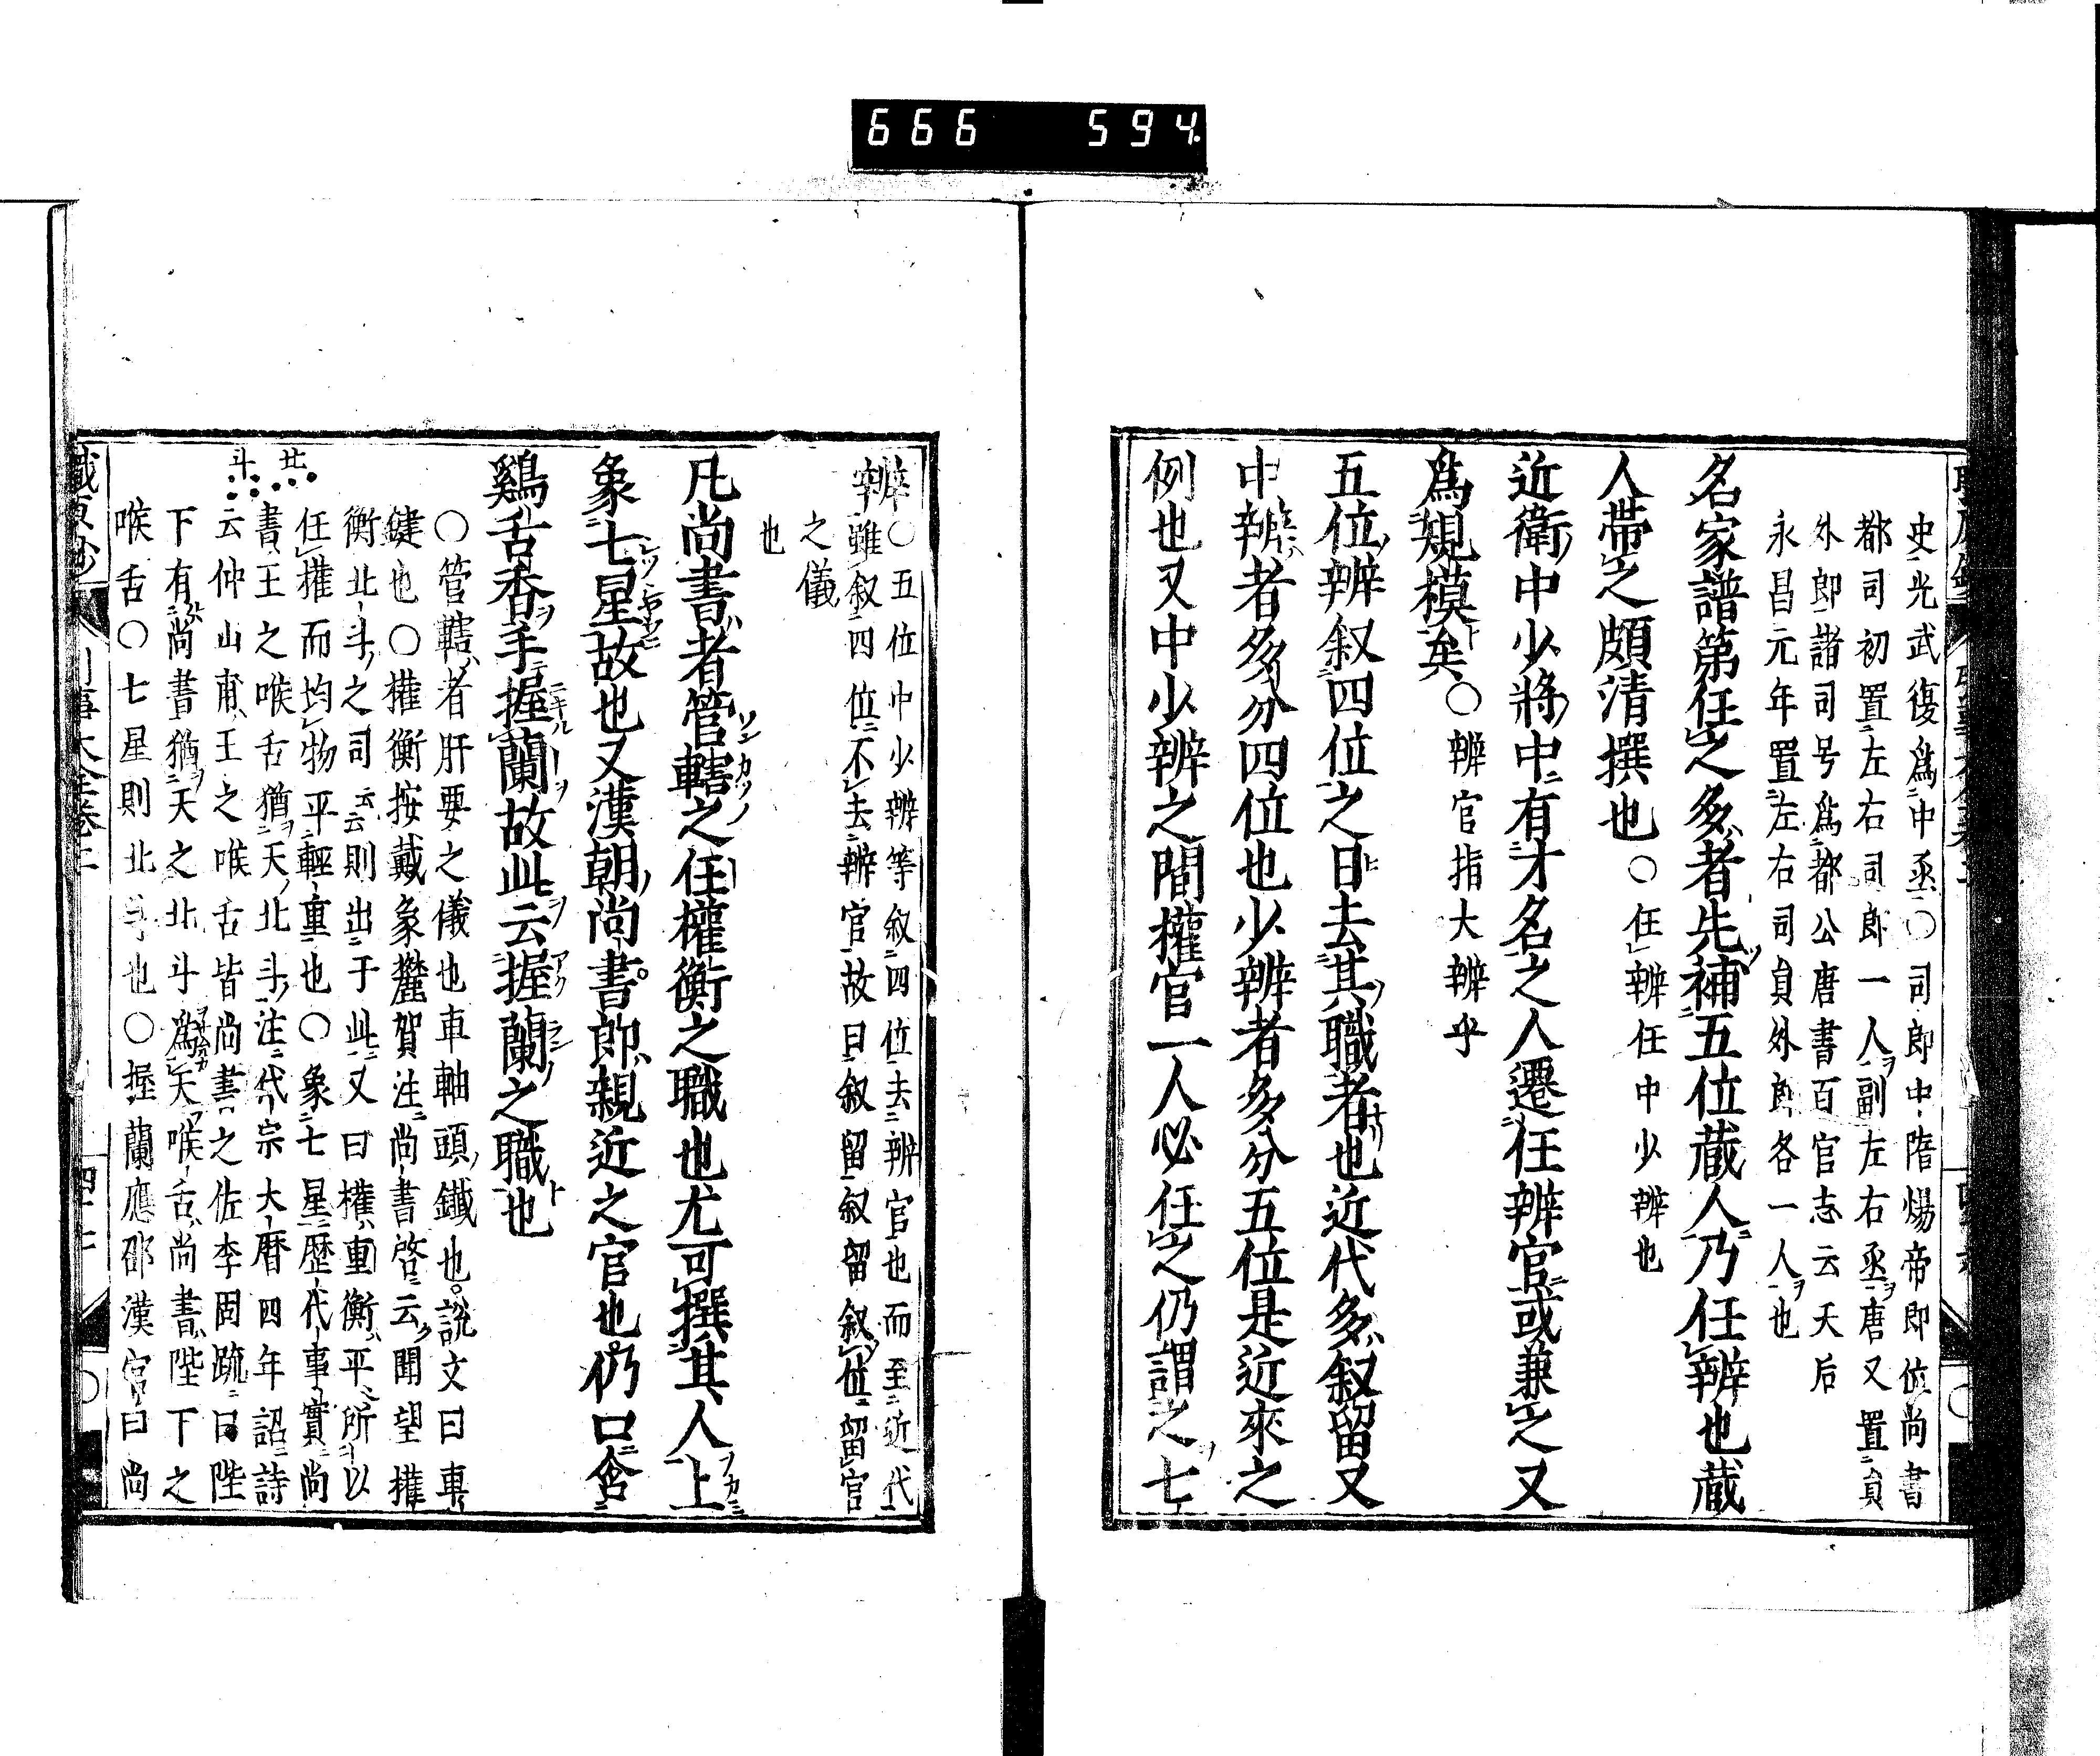 666 594
史光武復爲中丞○司郎中隋煬帝即位尚書
都司初置左右司郎一人副左右丞唐又置員
外郎諸司号爲都公唐書百官志云天后
永昌元年置左右司員外郎各一人也
名家譜第任之多者先補五位蔵人乃任辨也蔵
人帶之頗清撰也○任辨任中少辨也
近衛中少將中有才名之人遷任辨官或兼之又
爲規模矣○辨官指大辨乎
五位辨叙四位之日去其職者也近代多叙留又
中辨者多分四位也少辨者多分五位是近來之
例也又中少辨之間權官一人必任之仍謂之七
辨○五位中少辨等叙四位去辨官也而至近代
雖叙四位不去辨官故曰叙留叙留叙位留官
之儀
也
凡尚書者管轄之任權衡之職也尤可撰其人上
象七星故也又漢朝尚書郎親近之官也仍口含
鷄舌香手握蘭故此云握蘭之職也
○管轄者肝要之儀也車軸頭鐵也説文曰車
鍵也○權衡按戴象麓賀注尚書啓云聞望權
衡北斗之司云云則出于此又曰權重衡平所以
任權而均物平輕重也○象七星歴代事實尚
書王之喉舌猶天北斗注代宗大暦四年詔詩
云仲山甫王之喉舌皆尚書之佐李固疏曰陛
下有尚書猶天之北斗爲天喉舌尚書陛下之
喉舌○七星則北斗也○握蘭應邵漢官曰尚
北
斗